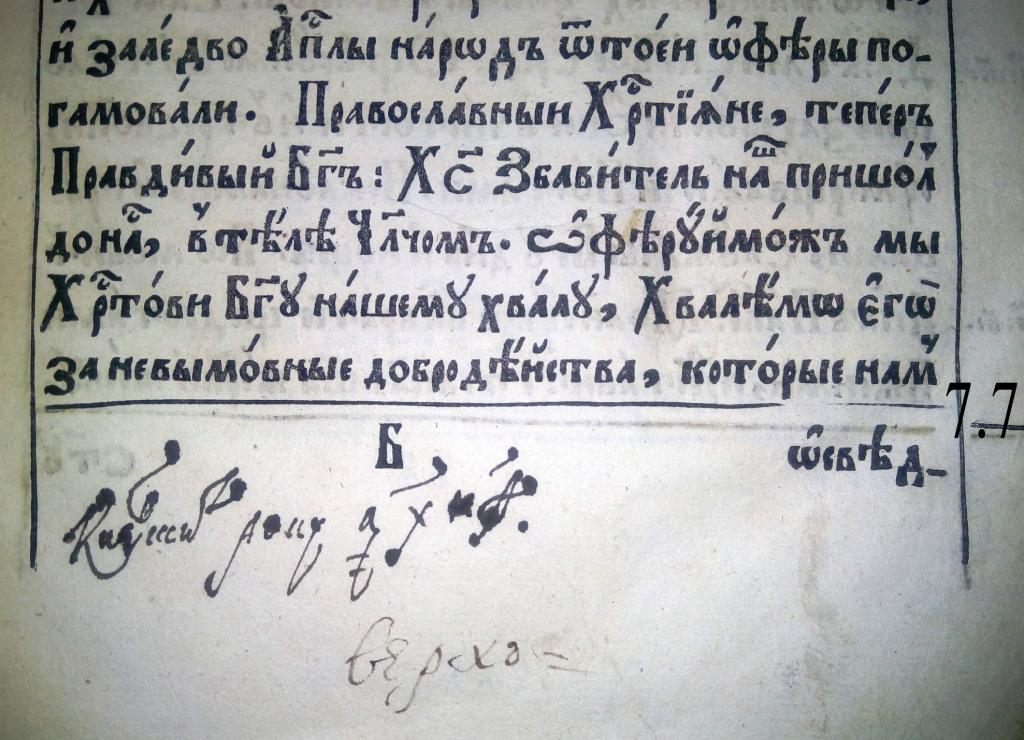 и҆ зале́дво А҆п҃лы на́рѡдъ ѿ тое́и ѡ҆фѣ́ры по-
гамова́ли. Правосла́вныи Хр҃тїѧ́не, тепе́ръ
Правди́вый Бг҃ъ: Хс҃ Збави́тель на́ш пришо́л
до на́с, в тѣ́лѣ Чл҃чомъ. Ѡ҆фѣрꙋ́ймо́жъ мы
Хр҃то́ви Бг҃ꙋ на́шемꙋ хва́лꙋ, Хвалѣ́мѡ є҆гѡ̀
за невымо́вные добродѣ́йства, кото́рые нам
7.7
Б
ѡ҆свѣд-
верхо =